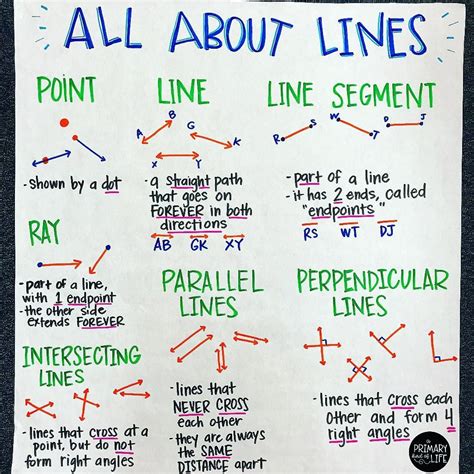 ALL ABOUT LINES
POINT
- shown by a dot
LINE
A
B
G
K
X
Y
- a straight path
that goes on
FOREVER in both
directions
AB GK XY
LINE SEGMENT
R
S
W
T
D
J
- part of a line
- it has 2 ends, called
"endpoints"
RS WT DJ
RAY
- part of a line,
with 1 endpoint
- the other side
extends FOREVER
PARALLEL
LINES
- lines that
NEVER CROSS
each other
- they are always
the SAME
DISTANCE apart
PERPENDICULAR
LINES
- lines that cross each
other and form 4
right angles
INTERSECTING
LINES
- lines that cross at a
point, but do not
form right angles
a
PRIMARY
kind of LIFE